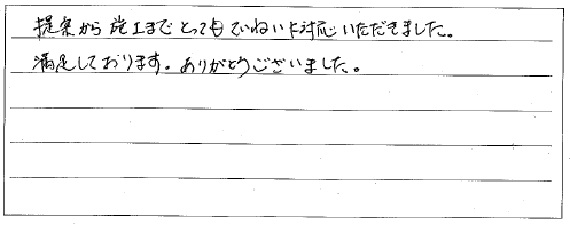 提案から施工までとってもていねいに対応いただきました。
満足しております。ありがとうございました。